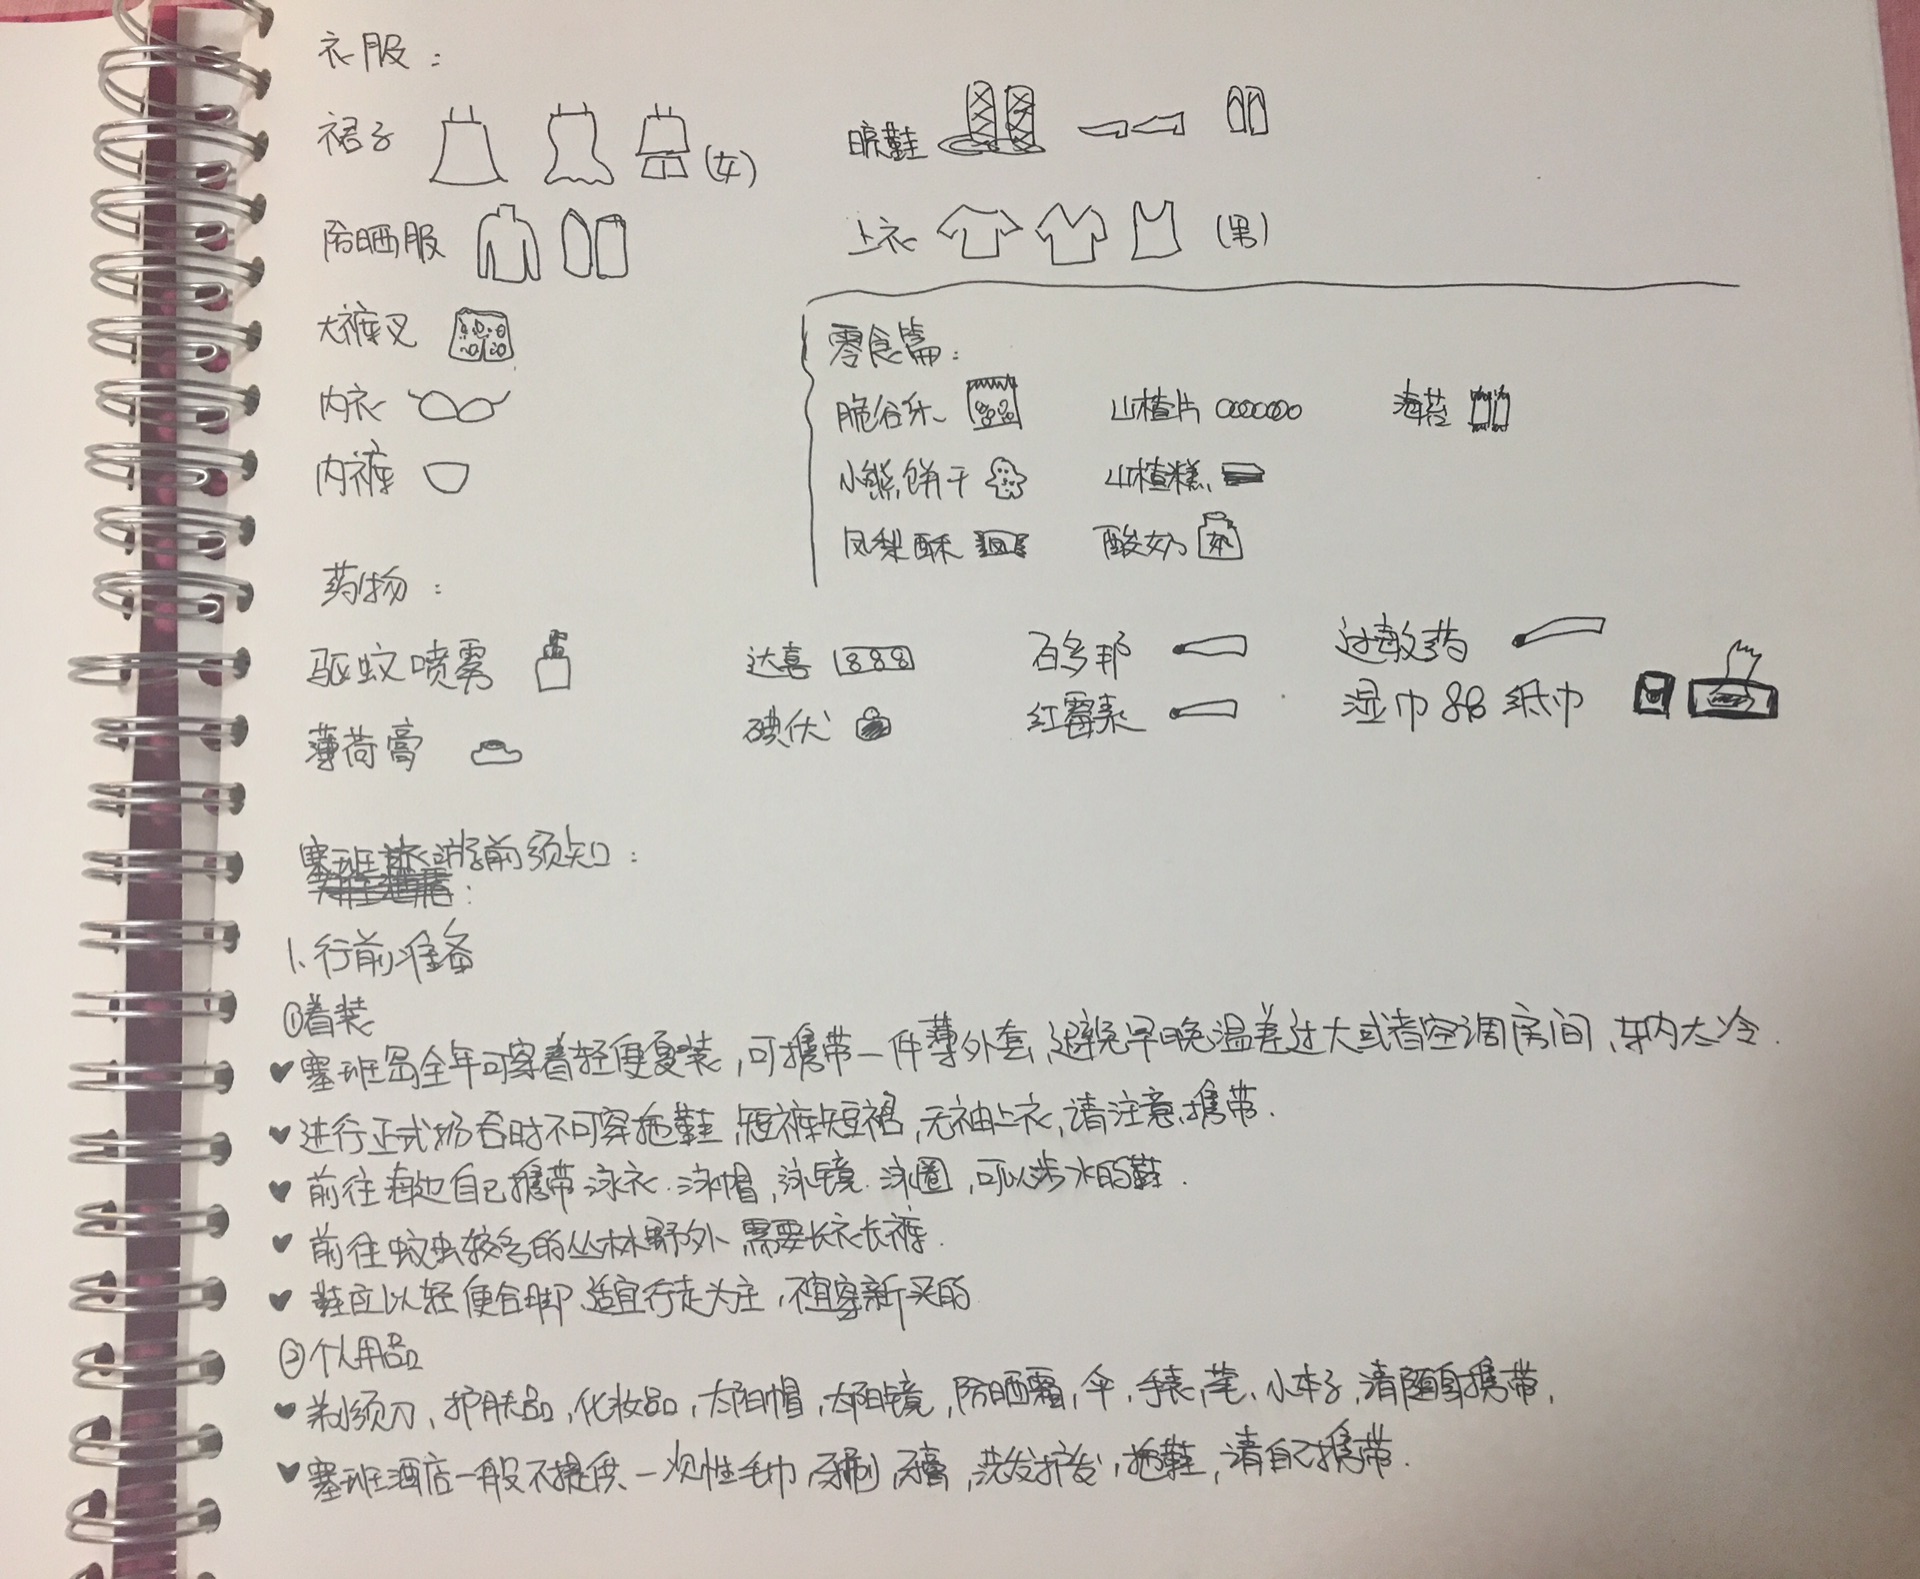 衣服：
裙子 (女)
晾鞋
防晒服
上衣 (男)
大裤叉
内衣
内裤
零食篇：
脆谷乐 山楂片 海苔
小熊饼干 山楂糕
凤梨酥 酸奶 奶
药物：
驱蚊喷雾 达喜 888 百多邦 过敏药
薄荷膏 碘伏 红霉素 湿巾 && 纸巾
塞班旅游前须知：
1、行前准备
①着装
♥ 塞班岛全年可穿着轻便夏装，可携带一件薄外套，避免早晚温差过大或者空调房间、车内太冷.
♥ 进行正式场合时不可穿拖鞋，短裤短裙，无袖上衣，请注意携带.
♥ 前往海边自己携带泳衣.泳帽，泳镜.泳圈，可以涉水的鞋.
♥ 前往蚊虫较多的丛林野外 需要长衣长裤.
♥ 鞋应以轻便合脚、适宜行走为主，不宜穿新买的
②个人用品
♥ 剃须刀、护肤品，化妆品，太阳帽，太阳镜，防晒霜，伞，手表，笔、小本子，请随身携带，
♥ 塞班酒店一般不提供一次性毛巾，牙刷，牙膏，洗发护发，拖鞋，请自己携带.